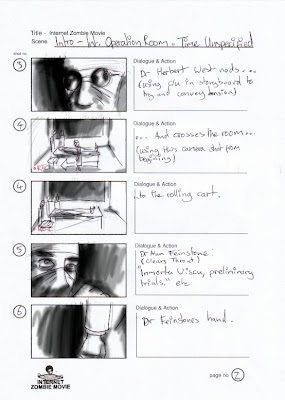 Title - Internet Zombie Movie
Scene Intro - Int. Operation Room - Time Unspecified
shot no
3
Dialogue & Action
Dr Herbert West nods...
(using c/u in storyboard to
try and convey tension)
4
Dialogue & Action
... And crosses the room...
(using HW's camera shot from
beginning)
4
Dialogue & Action
..to the rolling cart.
5
Dialogue & Action
Dr Alan Feinstone:
(Clears Throat)
preliminary
trials." etc
6
Dialogue & Action
Dr Feinstones hand.
INTERNET
ZOMBIE MOVIE
page no 2